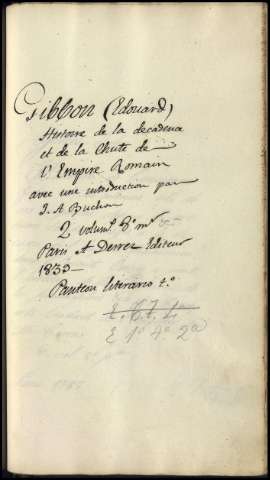 Gibbon (Edouard)
Histoire de la decadence
et de la Chute de
l'Empire Romain
avec une introduction par
J. A Buchon
2 volum.s 8.º m.or
Paris A Derrez Editeur
1835—
Panteon literario t.º
E. 6.7. 4ª
E 1º 4º 2ª